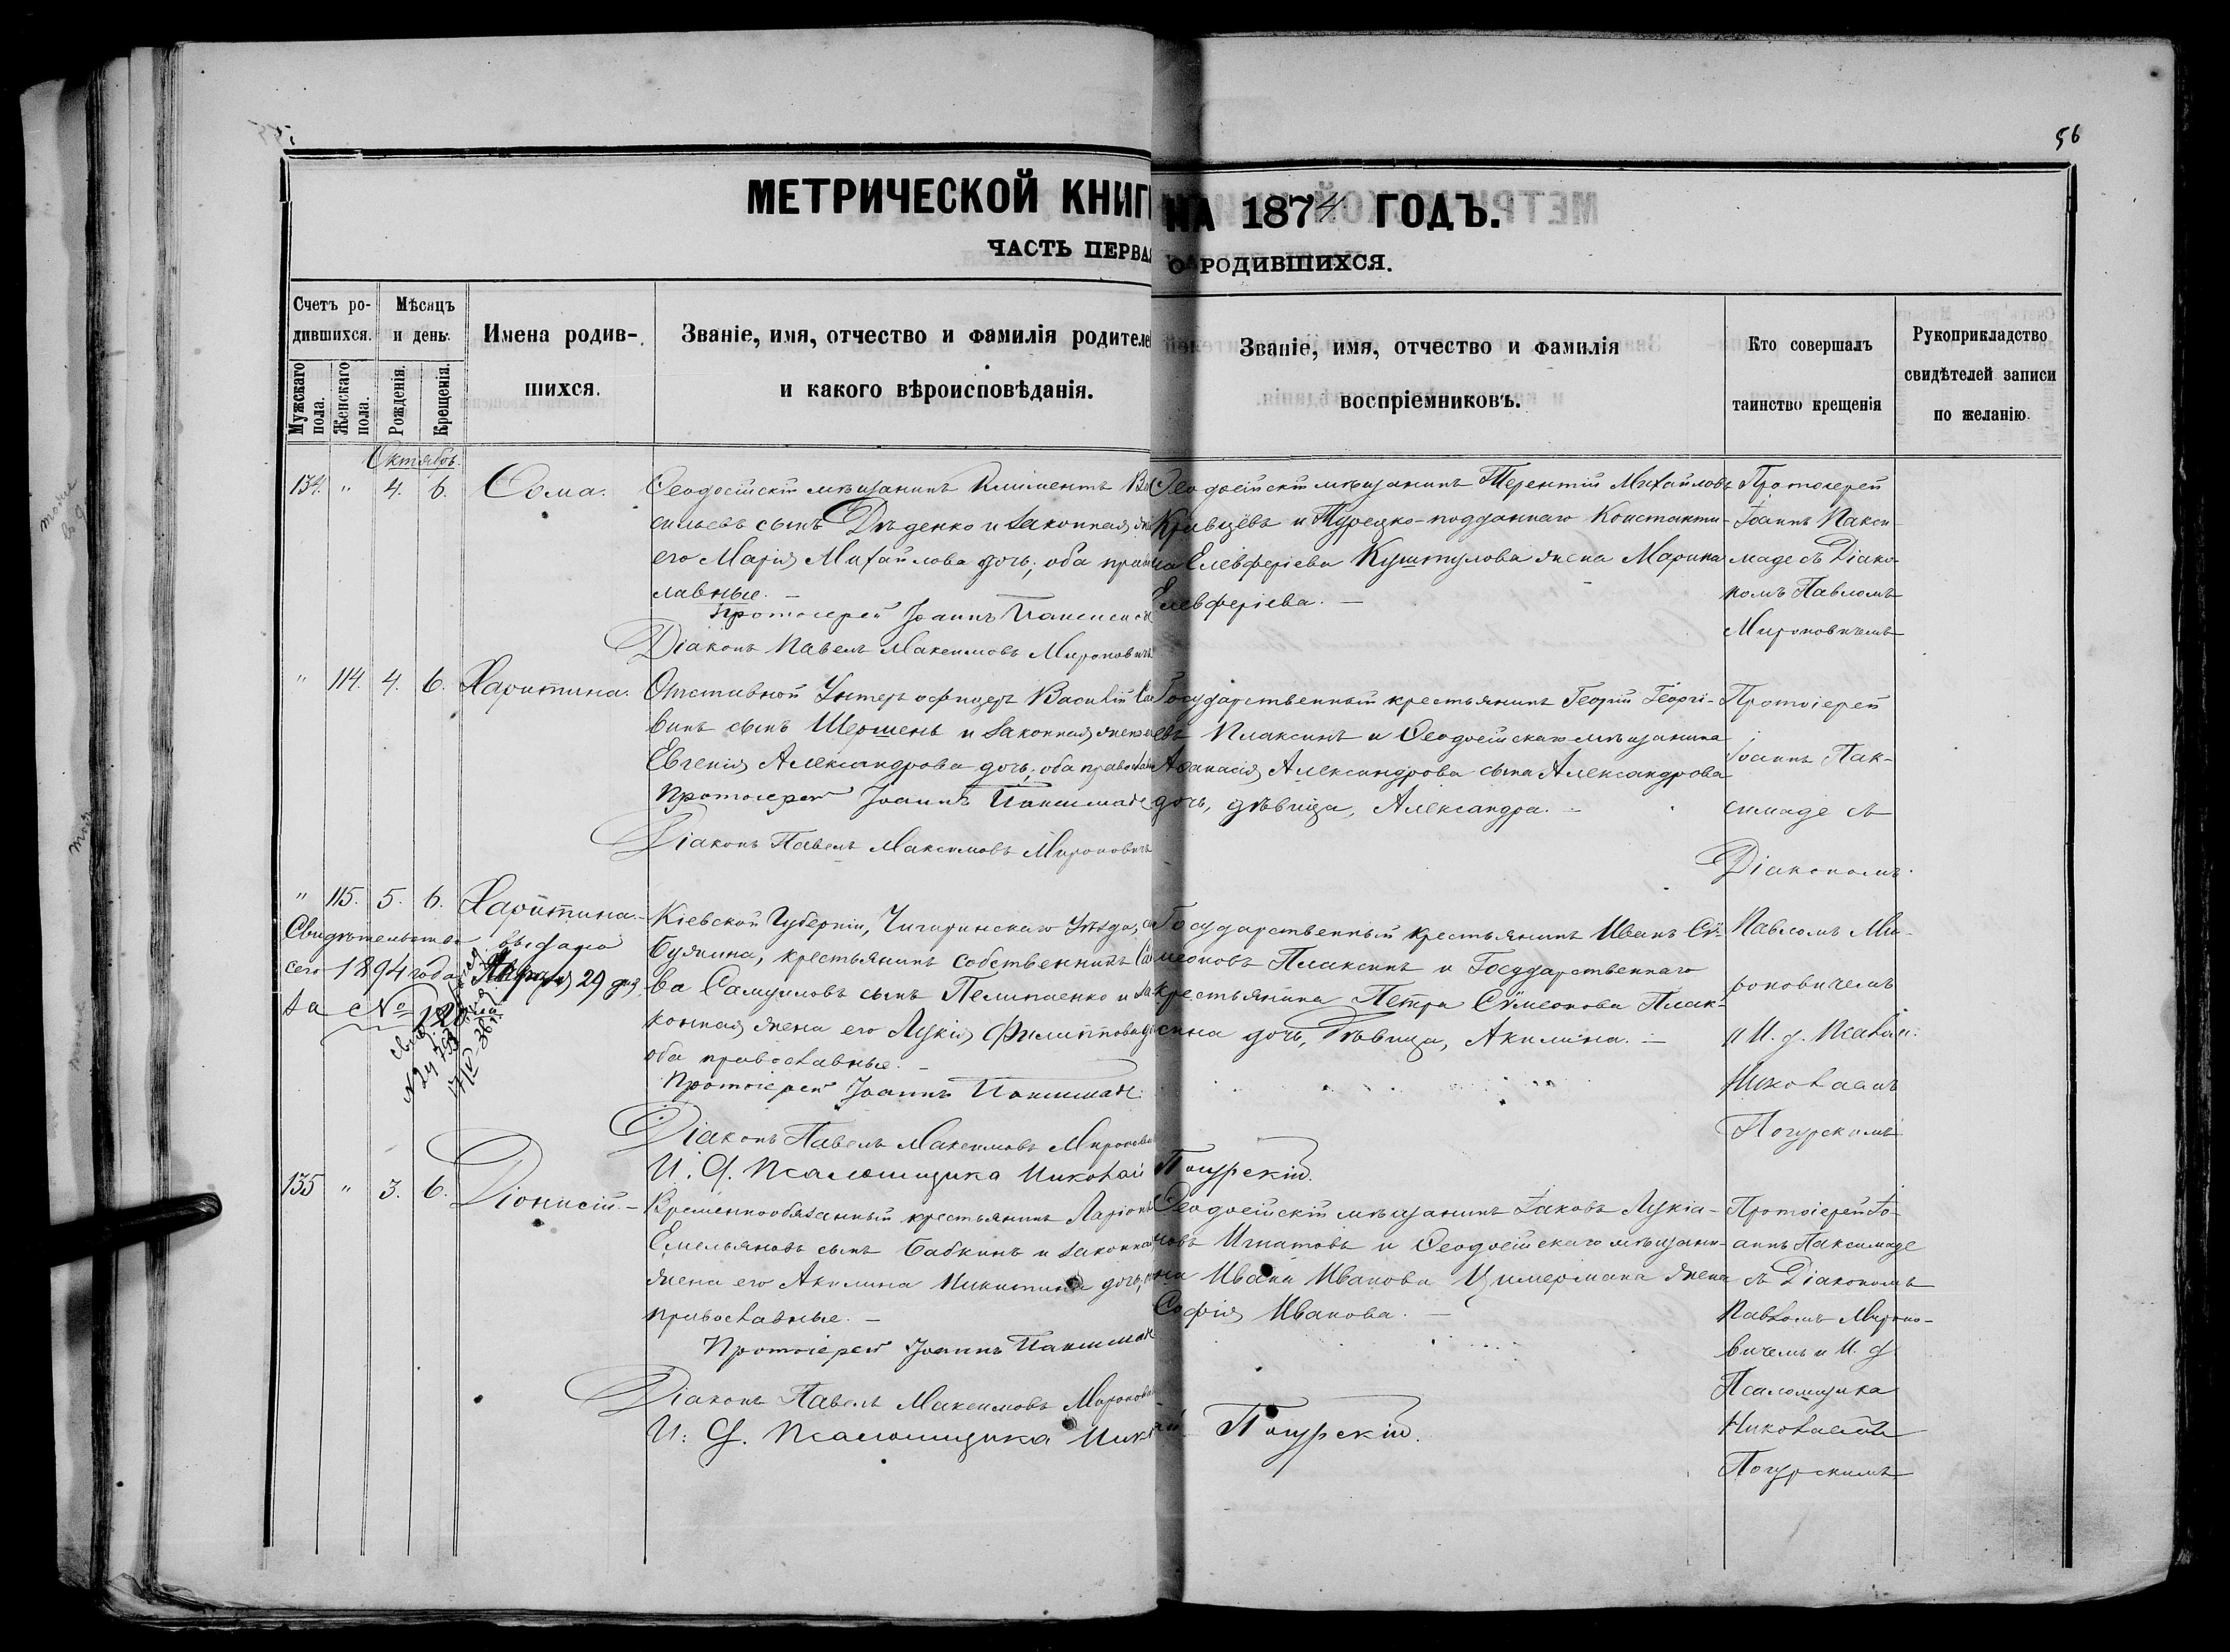 56
МЕТРИЧЕСКОЙ КНИГ НА 1874 ГОДЪ.
ЧАСТЬ ПЕРВАЯ О РОДИВШИХСЯ.
Счетъ ро-
дившихся.
Мужскаго пола.
Женскаго пола.
Мѣсяцъ
и день.
Рожденія.
Крещенія.
Имена родив-
шихся.
Званіе, имя, отчество и фамилія родителей
и какого вѣроисповѣданія.
Званіе, имя, отчество и фамилія
воспріемниковъ.
Кто совершалъ
таинство крещенія
Рукоприкладство
свидѣтелей записи
по желанію.
Октябрь.
134. " 4. 6. Ѳома.
Ѳеодосійскій мѣщанинъ Климентъ Ва
сильевъ сынъ Дѣденко и законная
его Марія Михайлова дочь; оба право
славные. —
Протоіерей Іоаннъ Паксимаде
Діаконъ Павелъ Максимовъ Мироновичъ
Ѳеодосійскій мѣщанинъ Терентій Михайловъ
Кривцёвъ и Турецко-подданнаго Константи-
на Елевферіева Куштулова жена Марина
Елевферіева. —
Протоіерей
Іоаннъ Пакси
маде съ Діако-
номъ Павломъ
Мироновичемъ
" 114. 4. 6. Харитина.
Отставной Унтеръ офицеръ Василій
винъ сынъ Шершень и законная жена
Евгенія Александрова дочь; оба православ
Протоіерей Іоаннъ Паксимаде
Діаконъ Павелъ Максимовъ Мироновичъ
Государственный крестьянинъ Георгій Георгі-
евъ Плаксинъ и Ѳеодосійскаго мѣщанина
Аѳанасія Александрова сына Александрова
дочь, дѣвица, Александра. —
Протоіерей
Іоаннъ Пак-
симаде съ
Діакономъ
Павломъ Ми-
роновичемъ
и И. д. Псалом.
Николаемъ
Погурскимъ
" 115. 5. 6. Харитина. —
Свидѣтельство выдано
сего 1894 года Апрѣля 29 дня
за № 120
№ 24
17/IV-36 г.
Кіевской Губерніи, Чигиринскаго Уѣзда, с
Бужина, крестьянинъ собственникъ Са
ва Самуиловъ сынъ Пелипенко и за
конная жена его Лукія Филиппова
оба православные. —
Протоіерей Іоаннъ Паксимаде.
Діаконъ Павелъ Максимовъ Миронови
И. Д. Псаломщика Николай Погурскій.
Государственный крестьянинъ Иванъ Сѵ-
меоновъ Плаксинъ и Государственнаго
крестьянина Петра Сѵмеонова Плак-
сина дочь, Дѣвица, Акилина. —
135 " 3. 6. Діонисій. —
Временнообязанный крестьянинъ Ларіонъ
Емельяновъ сынъ Бабкинъ и законная
жена его Акилина Никитина дочь,
православные. —
Протоіерей Іоаннъ Паксимаде
Діаконъ Павелъ Максимовъ Миронови
И: Д. Псаломщика Николай Погурскій.
Ѳеодосійскій мѣщанинъ Іаковъ Лукіа-
новъ Игнатовъ и Ѳеодосійскаго мѣщани-
на Ивана Иванова Цимермана жена
Софія Иванова. —
Протоіерей Іо-
аннъ Паксимаде
съ Діакономъ
Павломъ Мироно-
вичемъ и И. д.
Псаломщика
Николаемъ
Погурскимъ